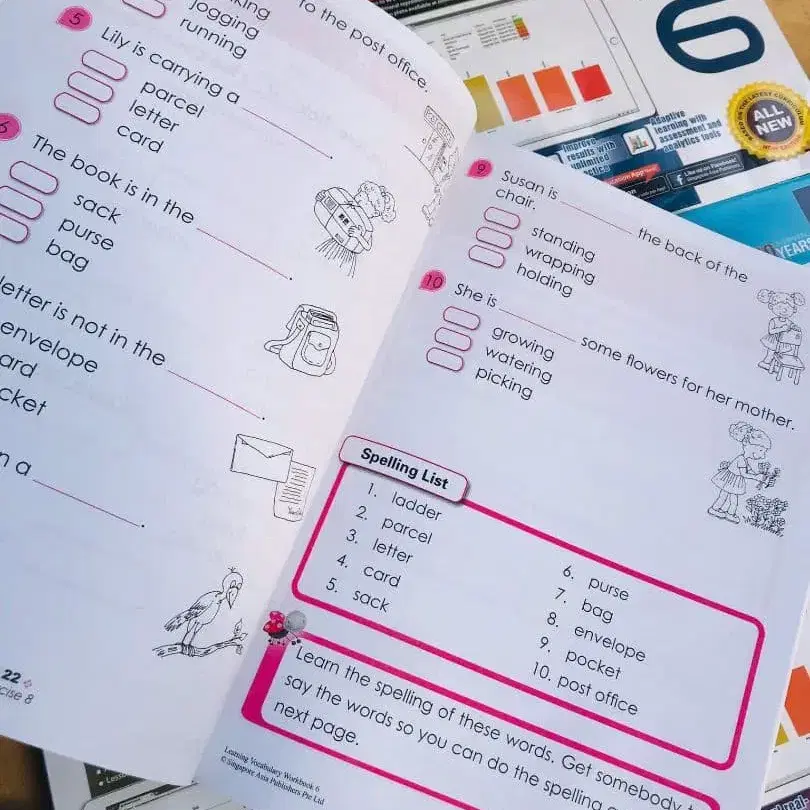 jogging
running
to the post office.
5
Lily is carrying a
parcel
letter
card
6
The book is in the
sack
purse
bag
letter is not in the
envelope
22
9
Susan is
the back of the
chair.
standing
wrapping
holding
10
She is
some flowers for her mother.
growing
watering
picking
Spelling List
1. ladder
2. parcel
3. letter
4. card
5. sack
6. purse
7. bag
8. envelope
9. pocket
10. post office
Learn the spelling of these words. Get somebody
say the words so you can do the spelling
next page.
Learning Vocabulary Workbook 6
© Singapore Asia Publishers Pte Ltd
6
Improve
results with
unlimited
Adaptive
learning with
assessment and
analytics tools
ALL
NEW
Like us on Facebook!
Singapore Asia Publishers
YEARS